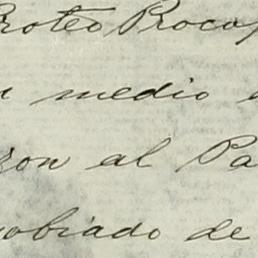 Proteo Procop
n medio
zon al Pa
obiado de